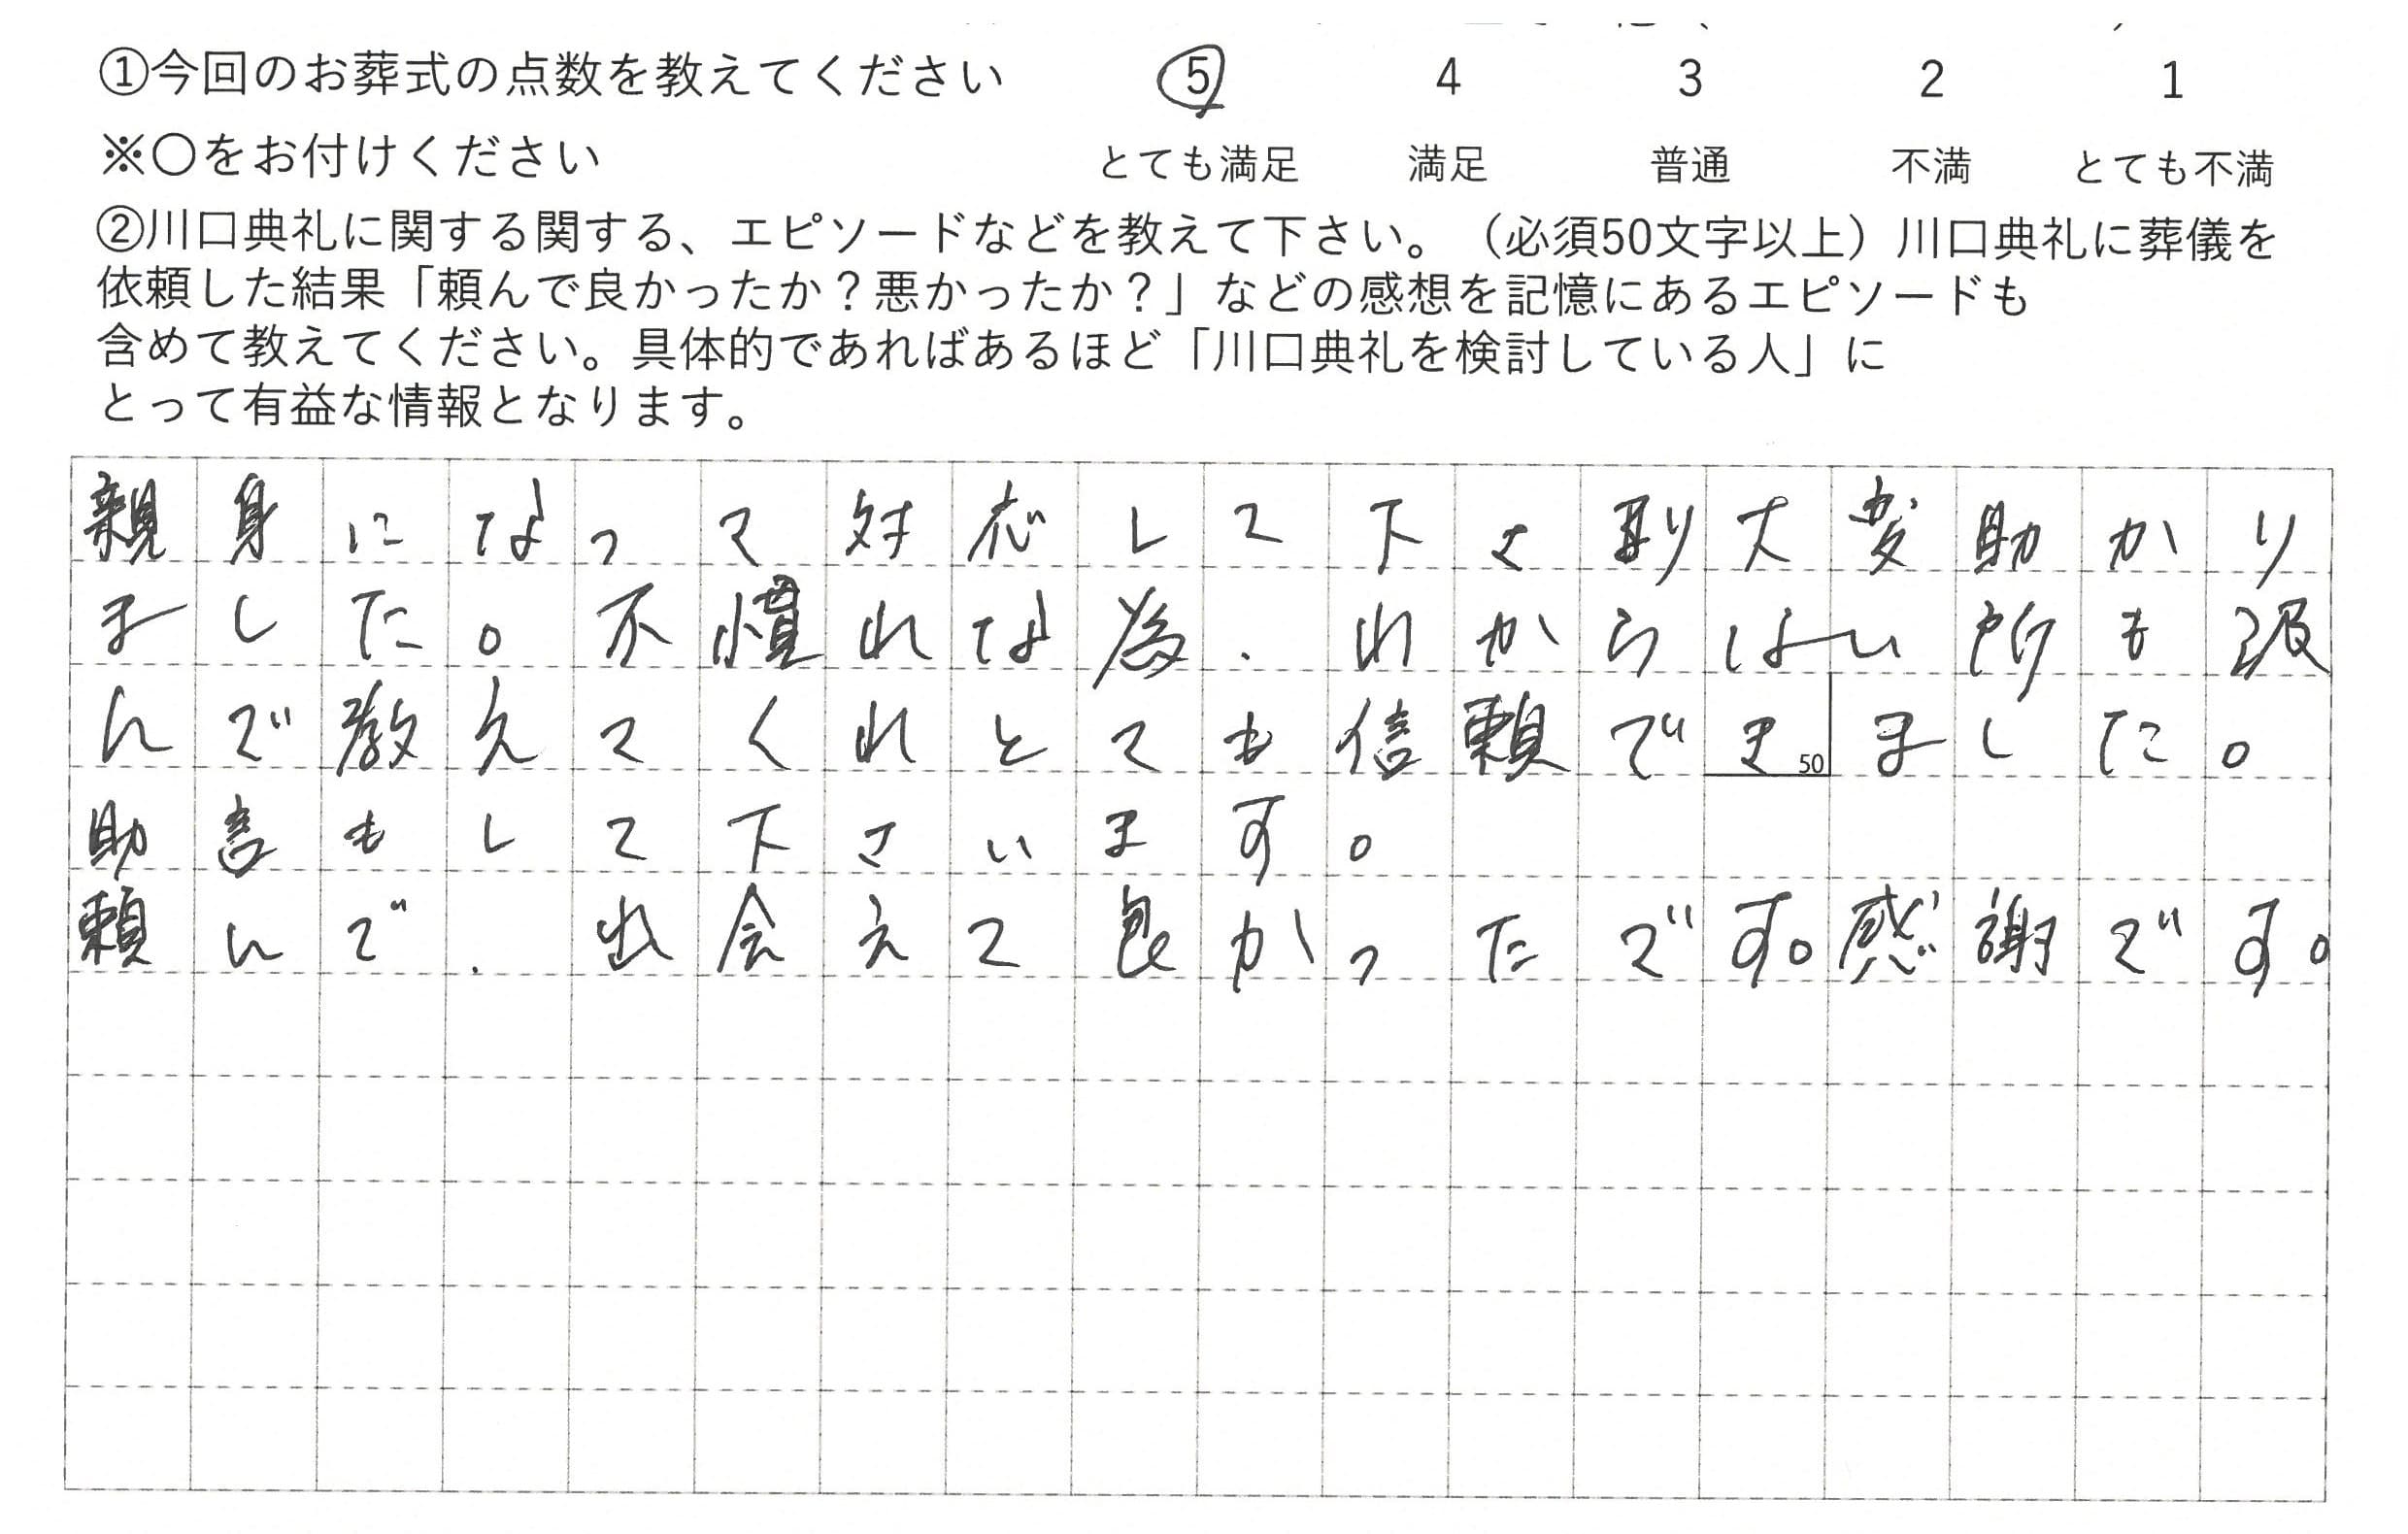 ①今回のお葬式の点数を教えてください 5 4 3 2 1
※〇をお付けください とても満足 満足 普通 不満 とても不満
②川口典礼に関する関する、エピソードなどを教えて下さい。（必須50文字以上）川口典礼に葬儀を
依頼した結果「頼んで良かったか？悪かったか？」などの感想を記憶にあるエピソードも
含めて教えてください。具体的であればあるほど「川口典礼を検討している人」に
とって有益な情報となります。
親身になって対応して下さり大変助かり
ました。不慣れな為、わからない所も汲
んで教えてくれとても信頼できました。
50
助言もして下さいます。
頼んで、出会えて良かったです。感謝です。